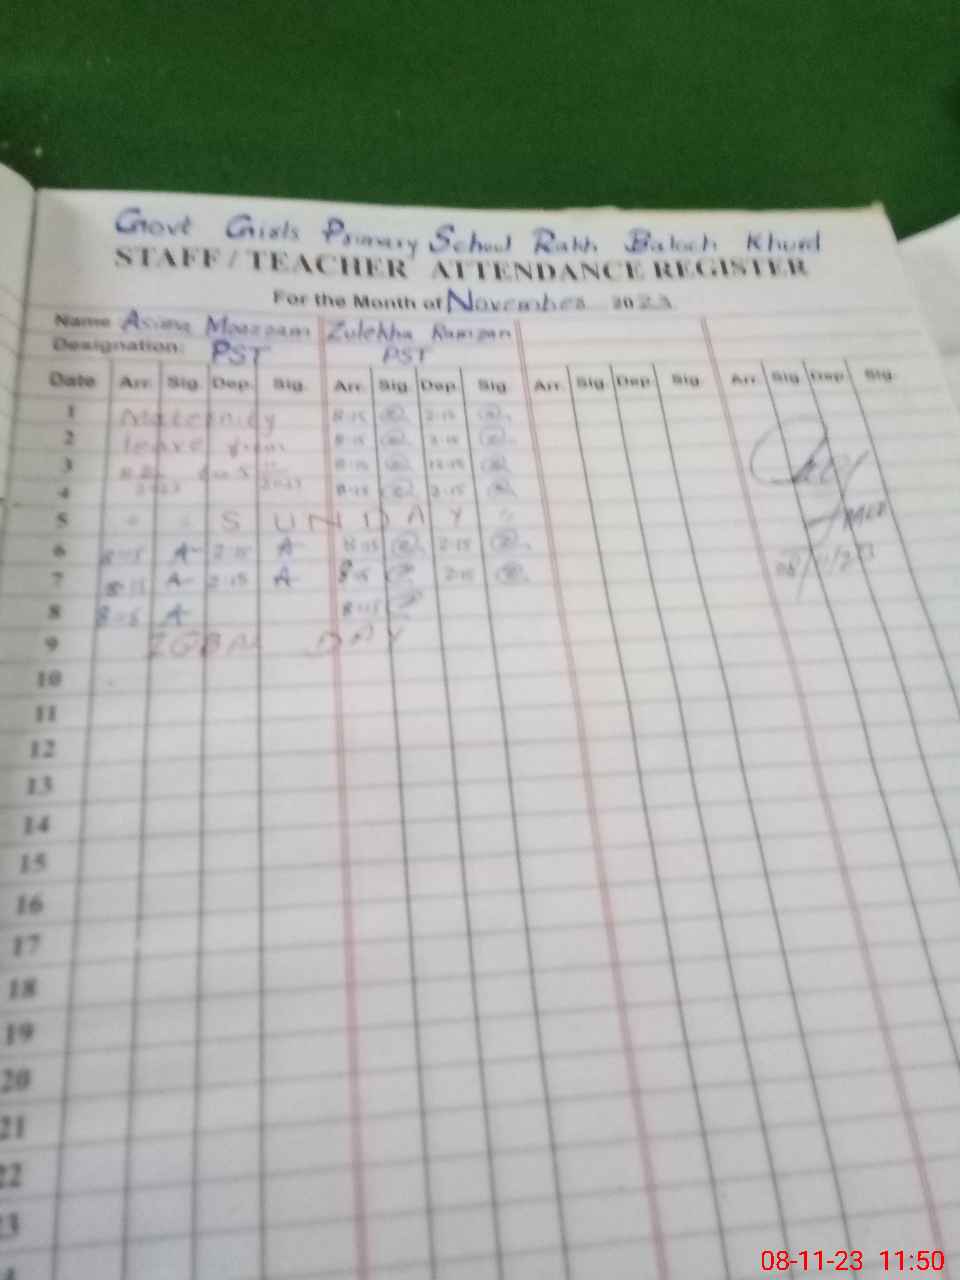 Govt Girls Primary School Rakh Baloch Khurd
STAFF / TEACHER ATTENDANCE REGISTER
For the Month of November 2023
Name Asima Moazzam Zulekha Ramzan
Designation: PST PST
Date Arr. Sig. Dep. Sig. Arr. Sig. Dep. Sig. Arr. Sig. Dep. Sig. Arr. Sig. Dep. Sig.
1 Maternity 8-15 2-15
2 leave from 8-15 2-15
3 8-15 12-15
4 8-15 2-15
5 SUNDAY
6 8-15 A 2-15 A 8-15 2-15
7 8-15 A 2-15 A 8-15 2-15
8 8-15 A 8-15
9 DAY
10
11
12
13
14
15
16
17
18
19
20
21
22
23
08/11/23
08-11-23 11:50